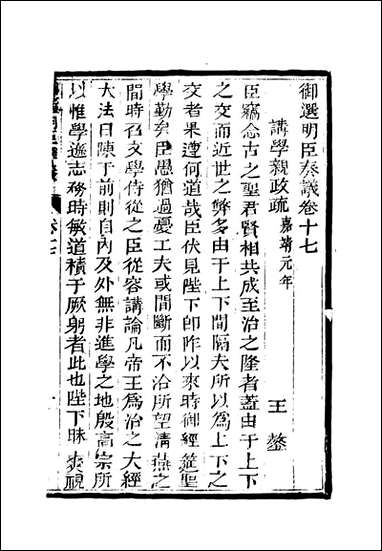 御選明臣奏議卷十七
講學親政疏嘉靖元年
王鏊
臣竊念古之聖君賢相共成至治之隆者蓋由于上下
之交而近世之弊多由于上下間隔夫所以為上下之
交者果遵何道哉臣伏見陛下即阼以來時御經筵聖
學勤矣臣愚猶過憂工夫或間斷而不洽所望淸燕之
間時召文學侍從之臣從容講論凡帝王為治之大經
大法日陳于前則自內及外無非進學之地殷高宗所
以惟學遜志務時敏道積于厥躬者此也陛下昧爽視